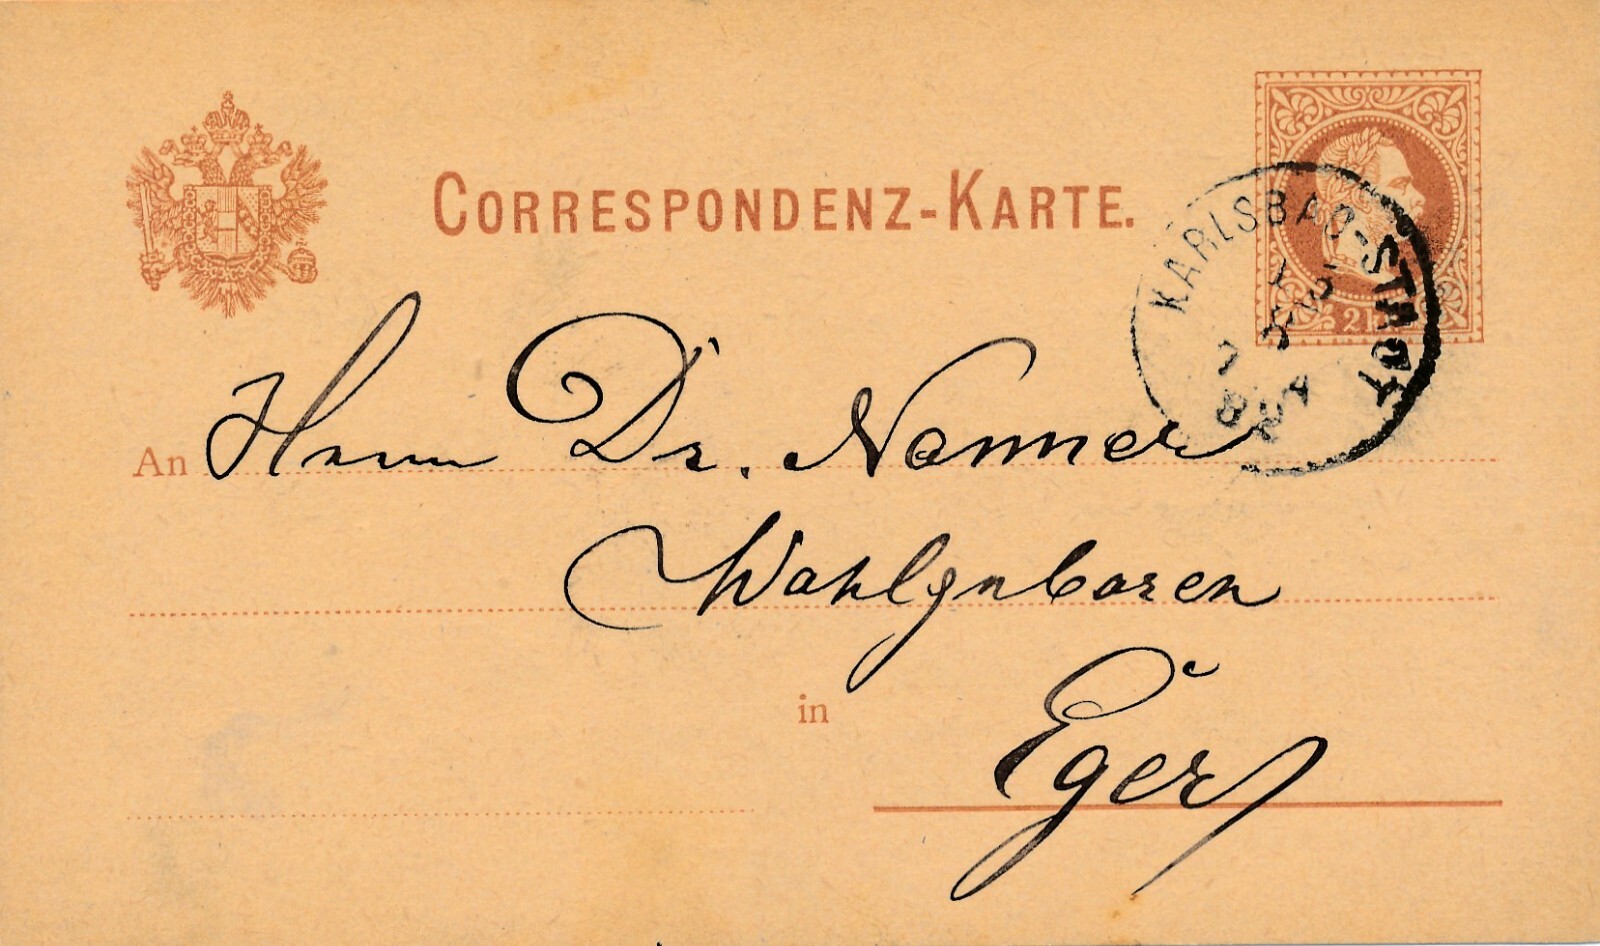 CORRESPONDENZ-KARTE.
KARLSBAD-STADT
An Herrn Dr. Nonner
Wohlgeboren
in
Eger